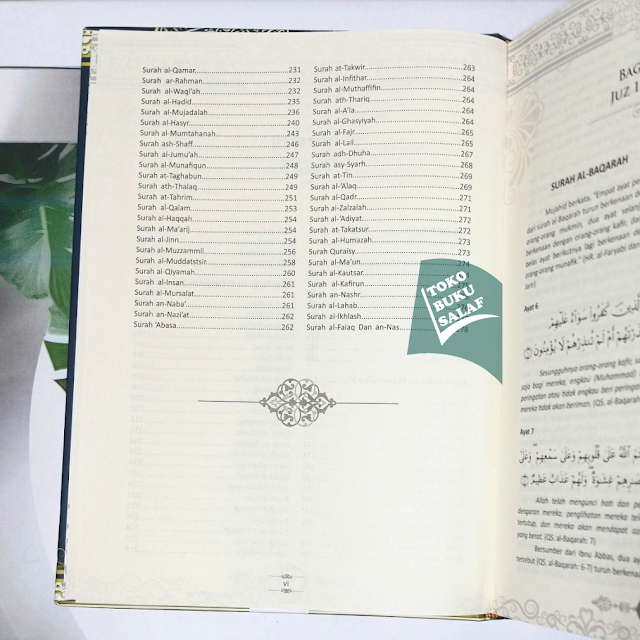 Surah al-Qamar 231
Surah ar-Rahman 232
Surah al-Waqi'ah 232
Surah al-Hadid 235
Surah al-Mujadalah 236
Surah al-Hasyr 240
Surah al-Mumtahanah 243
Surah ash-Shaff 246
Surah al-Jumu'ah 247
Surah al-Munafiqun 248
Surah at-Taghabun 249
Surah ath-Thalaq 249
Surah at-Tahrim 251
Surah al-Qalam 253
Surah al-Haqqah 254
Surah al-Ma'arij 254
Surah al-Jinn 254
Surah al-Muzzammil 256
Surah al-Muddatstsir 258
Surah al-Qiyamah 260
Surah al-Insan 261
Surah al-Mursalat 261
Surah an-Naba' 261
Surah an-Nazi'at 262
Surah 'Abasa 262
Surah at-Takwir 263
Surah al-Infithar 264
Surah al-Muthaffifin 264
Surah ath-Thariq 264
Surah al-A'la 264
Surah al-Ghasyiyah 264
Surah al-Fajr 265
Surah al-Lail 265
Surah adh-Dhuha 267
Surah asy-Syarh 268
Surah at-Tin 269
Surah al-'Alaq 269
Surah al-Qadr 271
Surah al-Zalzalah 271
Surah al-'Adiyat 272
Surah at-Takatsur 272
Surah al-Humazah 273
Surah Quraisy 273
Surah al-Ma'un 274
Surah al-Kautsar
Surah al-Kafirun
Surah an-Nashr
Surah al-Lahab
Surah al-Ikhlash
Surah al-Falaq Dan an-Nas
TOKO
BUKU
SALAF
vi
BAG
JUZ 1
SURAH AL-BAQARAH
Mujahid berkata, "Empat ayat
dari surah al-Baqarah turun berkenaan
orang-orang mukmin, dua ayat
berkenaan dengan orang-orang kafir,
belas ayat berikutnya lagi berkenaan
orang-orang munafik." (HR. al-Faryabi
Jarir)
Ayat 6
Sesungguhnya orang-orang kafir,
saja bagi mereka, engkau (Muhammad)
peringatan atau tidak engkau beri
mereka tidak akan beriman. (QS.
Ayat 7
Allah telah mengunci hati dan
dengaran mereka, penglihatan mereka
tertutup, dan mereka akan mendapat
yang berat. (QS. al-Baqarah: 7)
Bersumber dari Ibnu Abbas, dua
tersebut (QS. al-Baqarah: 6-7) turun